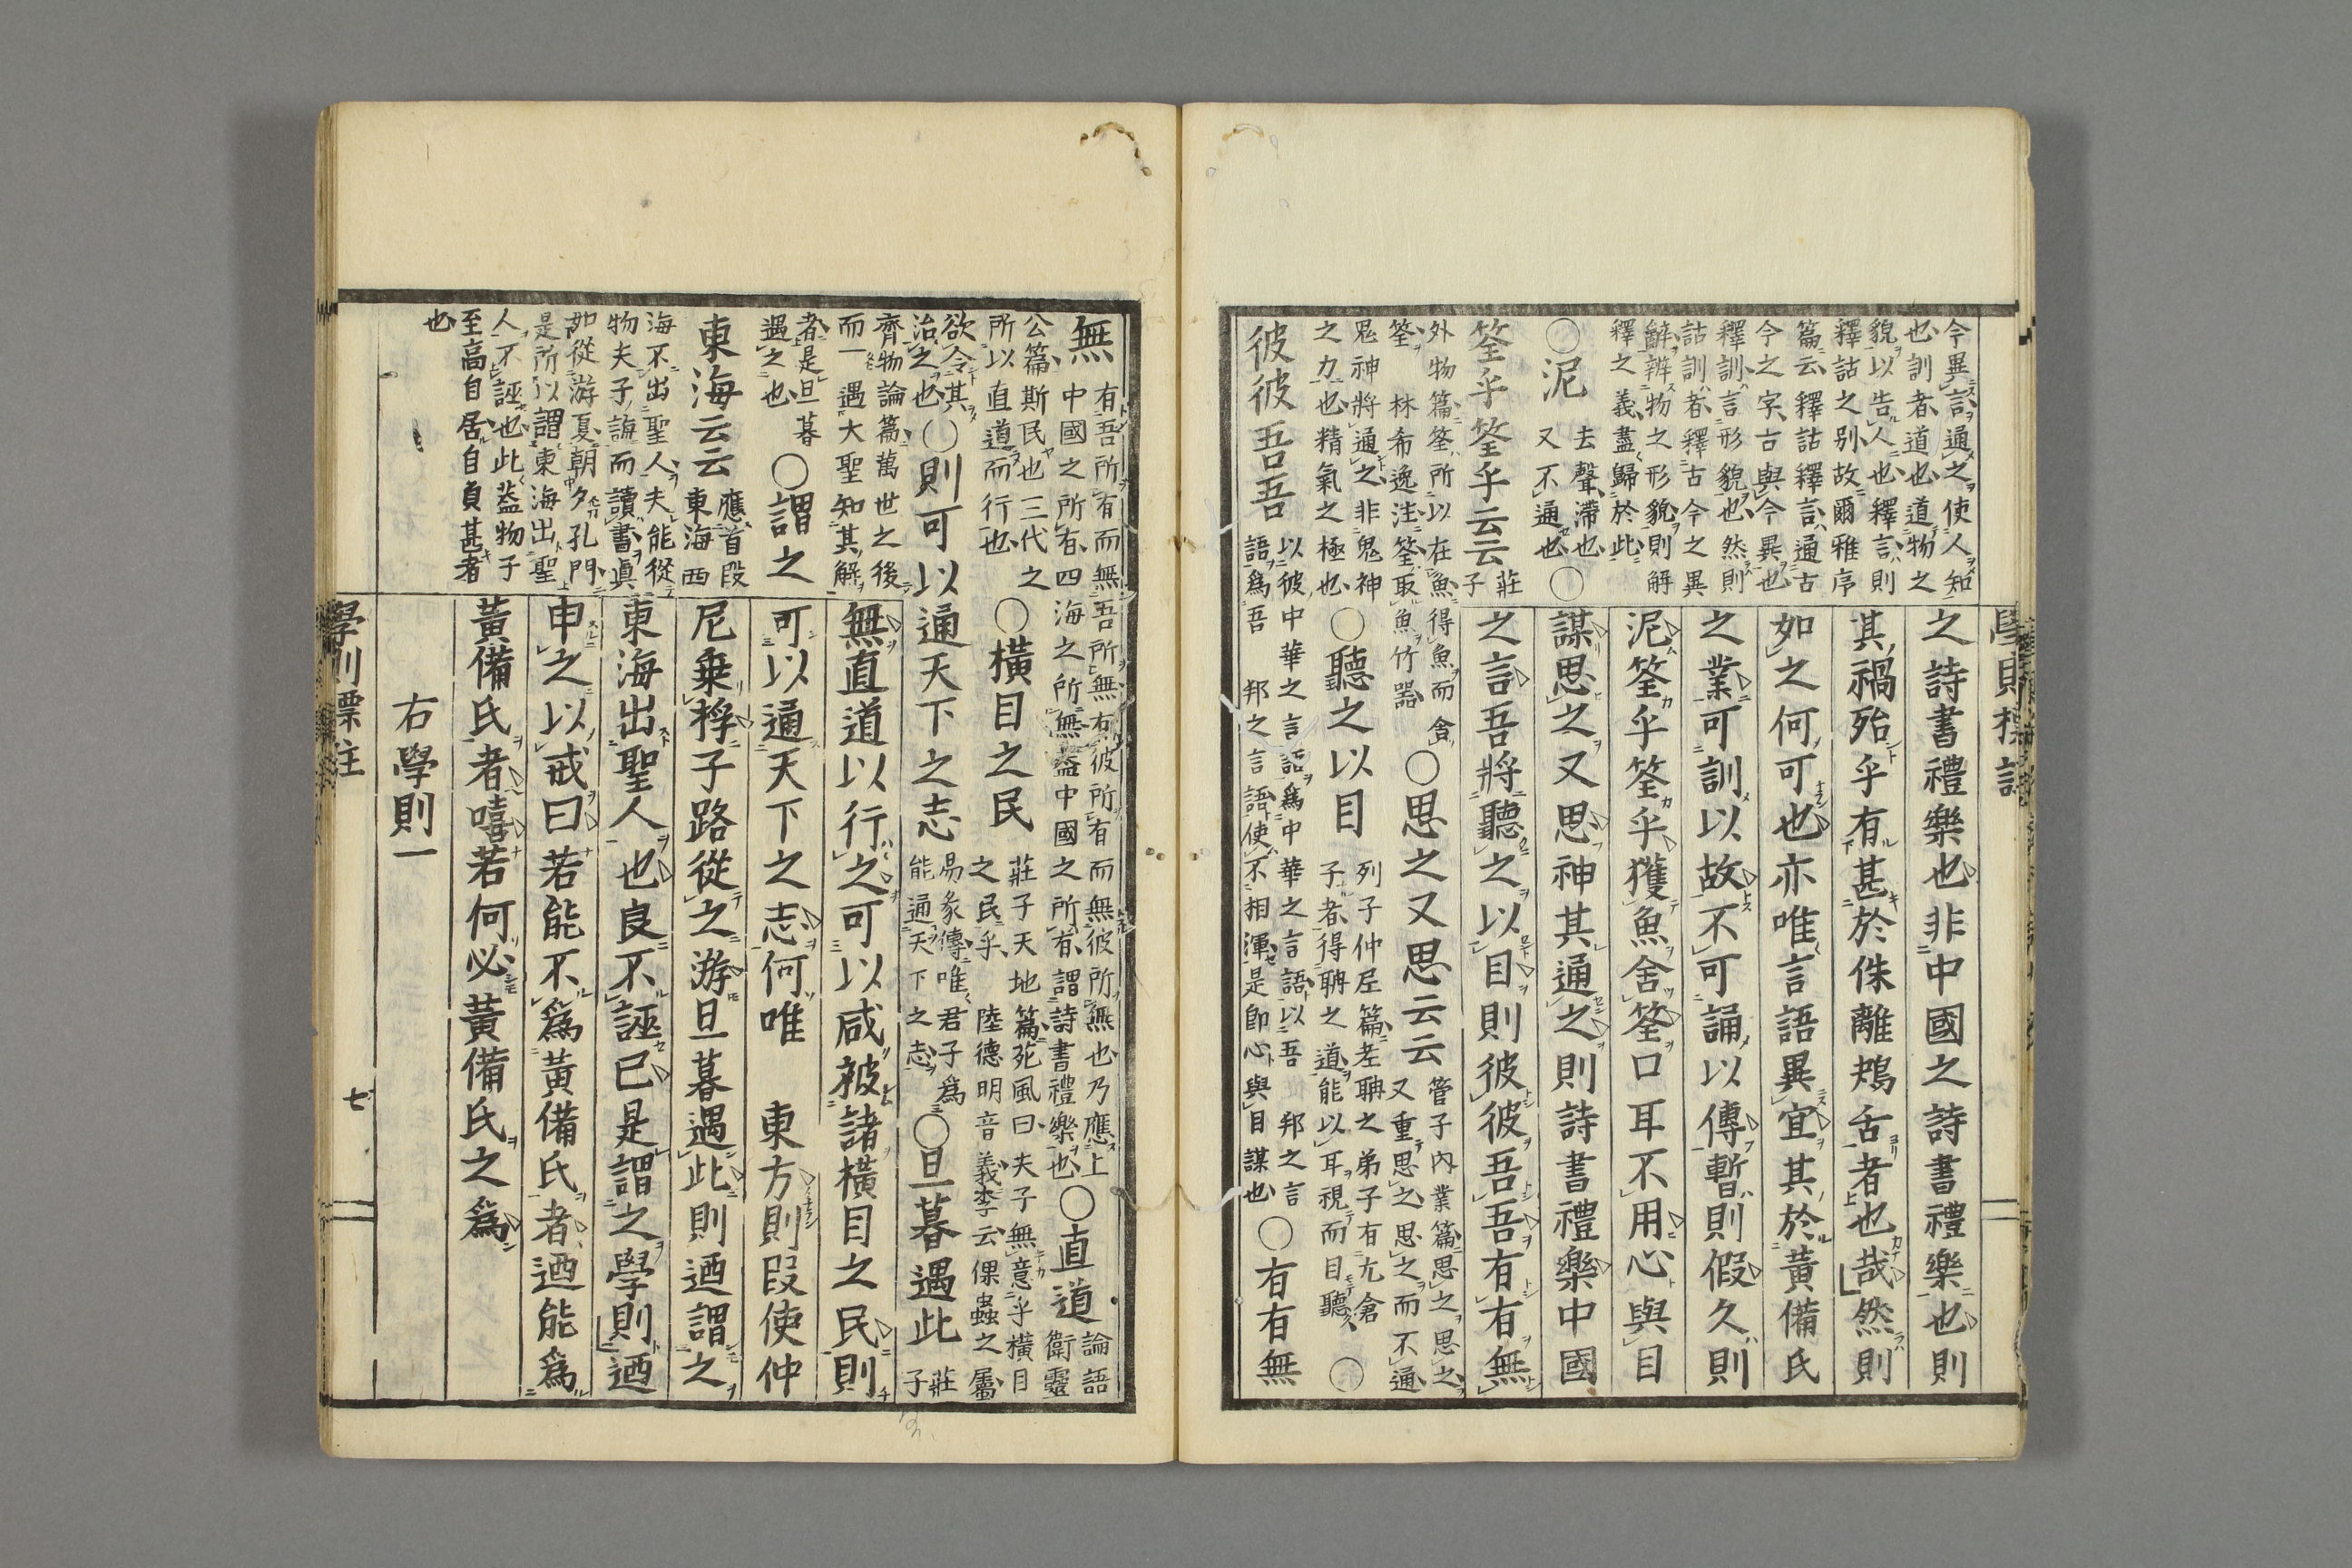 學則標註
今異言通之使人知
也訓者道也道物之
貌以告人也釋言則
釋詁之別故爾雅序
篇云釋詁釋言通古
今之字古與今異也
釋訓言形貌也然則
詁訓者釋古今之異
辭辨物之形貌則解
釋之義盡歸於此
〇泥
去聲滯也
又不通也
〇
筌乎筌乎云云
莊
子
之詩書禮樂也非中國之詩書禮樂也則
其禍殆乎有甚於侏離鴂舌者也哉然則
如之何可也亦唯言語異宜其於黃備氏
之業可訓以故不可誦以傳暫則假久則
泥筌乎筌乎獲魚舍筌口耳不用心與目
謀思之又思神其通之則詩書禮樂中國
之言吾將聽之以目則彼彼吾吾有有無
外物篇筌所以在魚得魚而
筌 林希逸注筌取魚竹器
〇思之又思云云
管子內業篇思之思之
又重思之思之而不通
鬼神將通之非鬼神
之力也精氣之極也
〇聽之以目
列子仲尼篇老聃之弟子有亢倉
子者得聃之道能以耳視而目聽
〇
彼彼吾吾
以彼中華之言語爲中華之言語以吾 邦之言
語爲吾 邦之言語使不相渾是卽心與目謀也
〇有有無
無
有吾所有而無吾所無有彼所有而無彼所無也乃應上
中國之所有四海之所無蓋中國之所有謂詩書禮樂也
〇直道
論語
衛靈
公篇斯民也三代之
所以直道而行也
〇橫目之民
莊子天地篇苑風曰夫子無意乎橫目
之民乎 陸德明音義李云倮蟲之屬
欲令其
治之也
〇則可以通天下之志
易彖傳唯君子爲
能通天下之志
〇旦暮遇此
莊
子
齊物論篇萬世之後
而一遇大聖知其解
者是旦暮
遇之也
〇謂之
東海云云
應首段
東海西
海不出聖人夫能從
物夫子誨而讀書眞
如從游夏朝夕孔門
是所以謂東海出聖
人不誣也此蓋物子
至高自居自負甚者
也
無直道以行之可以咸被諸橫目之民則
可以通天下之志何唯 東方則段使仲
尼乗桴子路從之游旦暮遇此則迺謂之
東海出聖人也良不誣已是謂之學則迺
申之以戒曰若能不爲黃備氏者迺能爲
黃備氏者嘻若何必黃備氏之爲
右學則一
學則標註
七